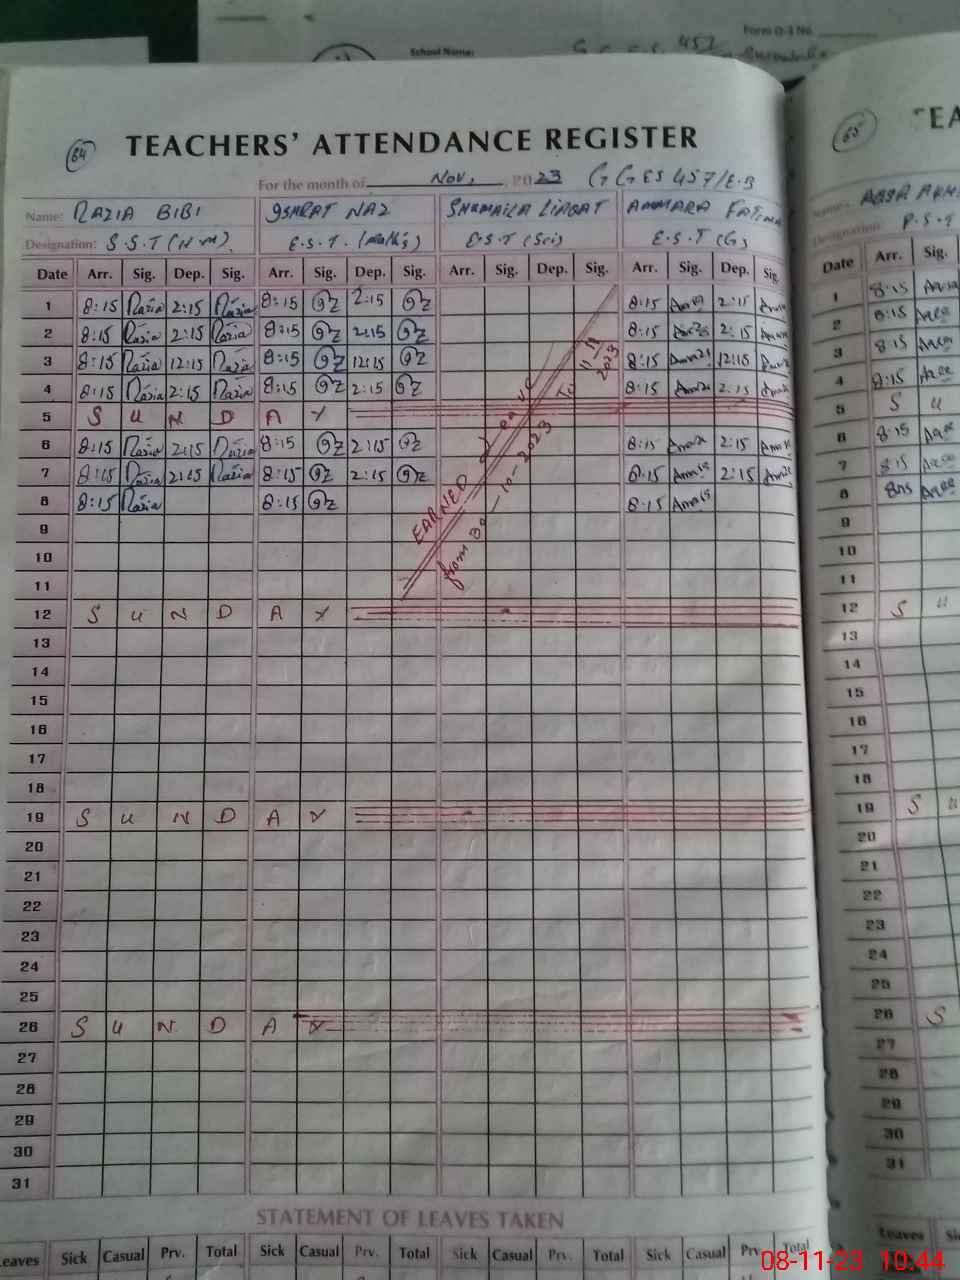 Form D-3 No.
School Name:
64
TEACHERS' ATTENDANCE REGISTER
For the month of Nov, 2023 GGES 457/E.B
Name: RAZIA BIBI ISHRAT NAZ SHUMAILA LIAQAT AMMARA FATIMA
Designation: S.S.T (H.M). E.S.T. (Math's) E.S.T (Sci) E.S.T (G)
Date Arr. Sig. Dep. Sig. Arr. Sig. Dep. Sig. Arr. Sig. Dep. Sig. Arr. Sig. Dep. Sig.
1 8:15 Razia 2:15 Razia 8:15 2:15 8:15 2:15
2 8:15 Razia 2:15 Razia 8:15 2:15 8:15 2:15
3 8:15 Razia 12:15 Razia 8:15 12:15 8:15 12:15
4 8:15 Razia 2:15 Razia 8:15 2:15 8:15 2:15
5 S U N D A Y
6 8:15 Razia 2:15 Razia 8:15 2:15 8:15 2:15
7 8:15 Razia 2:15 Razia 8:15 2:15 8:15 2:15
8 8:15 Razia 8:15 8:15
EARNED Leave
from 30-10-2023 To 11-11-2023
9
10
11
12 S U N D A Y
13
14
15
16
17
18
19 S U N D A Y
20
21
22
23
24
25
26 S U N D A Y
27
28
29
30
31
STATEMENT OF LEAVES TAKEN
Leaves Sick Casual Prv. Total Sick Casual Prv. Total Sick Casual Prv. Total Sick Casual Prv. Total
65
TEA
Name:
Designation: P.S.T
Date Arr. Sig.
1 8:15
2 8:15
3 8:15
4 8:15
5 S U
6 8:15
7 8:15
8 8:15
9
10
11
12 S U
13
14
15
16
17
18
19 S U
20
21
22
23
24
25
26 S
27
28
29
30
31
Leaves
Sick
08-11-23 10:44